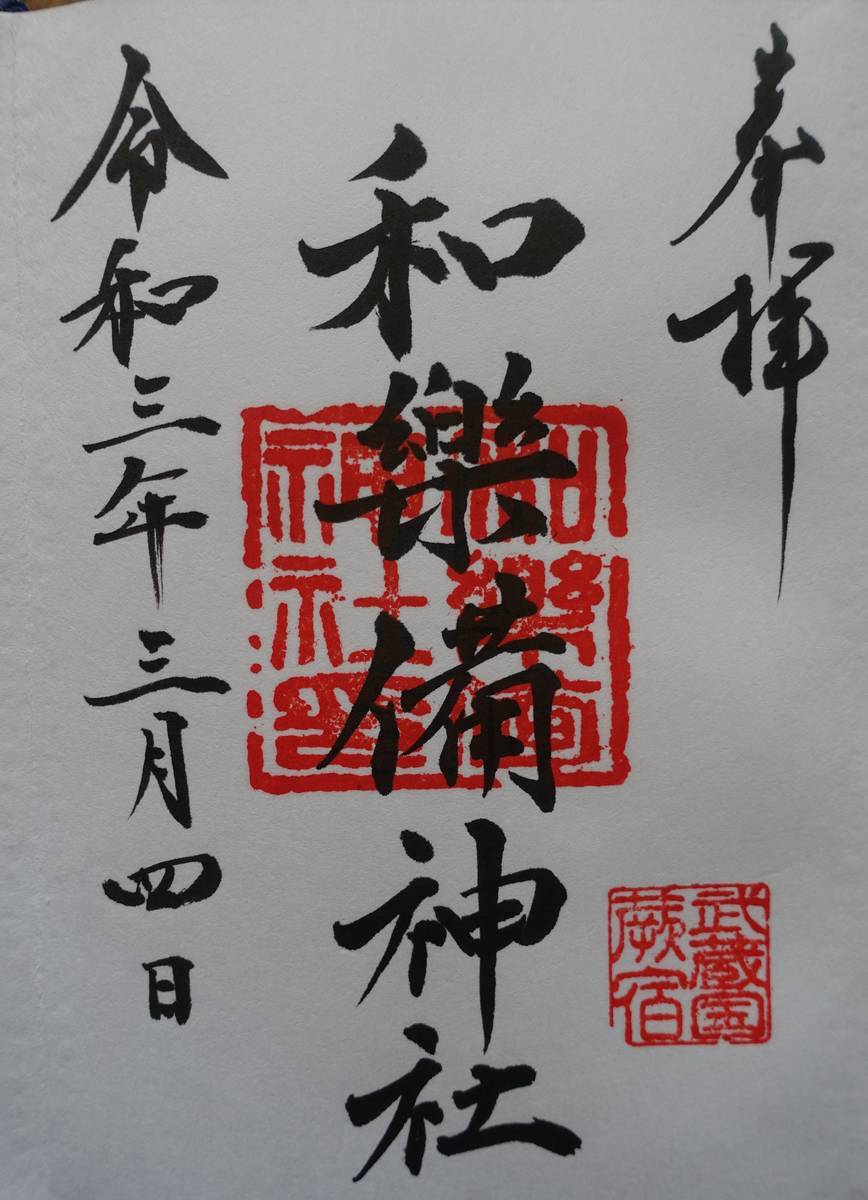 奉拝
和樂備神社
和樂備神社印
武蔵国
蕨宿
令和三年三月四日